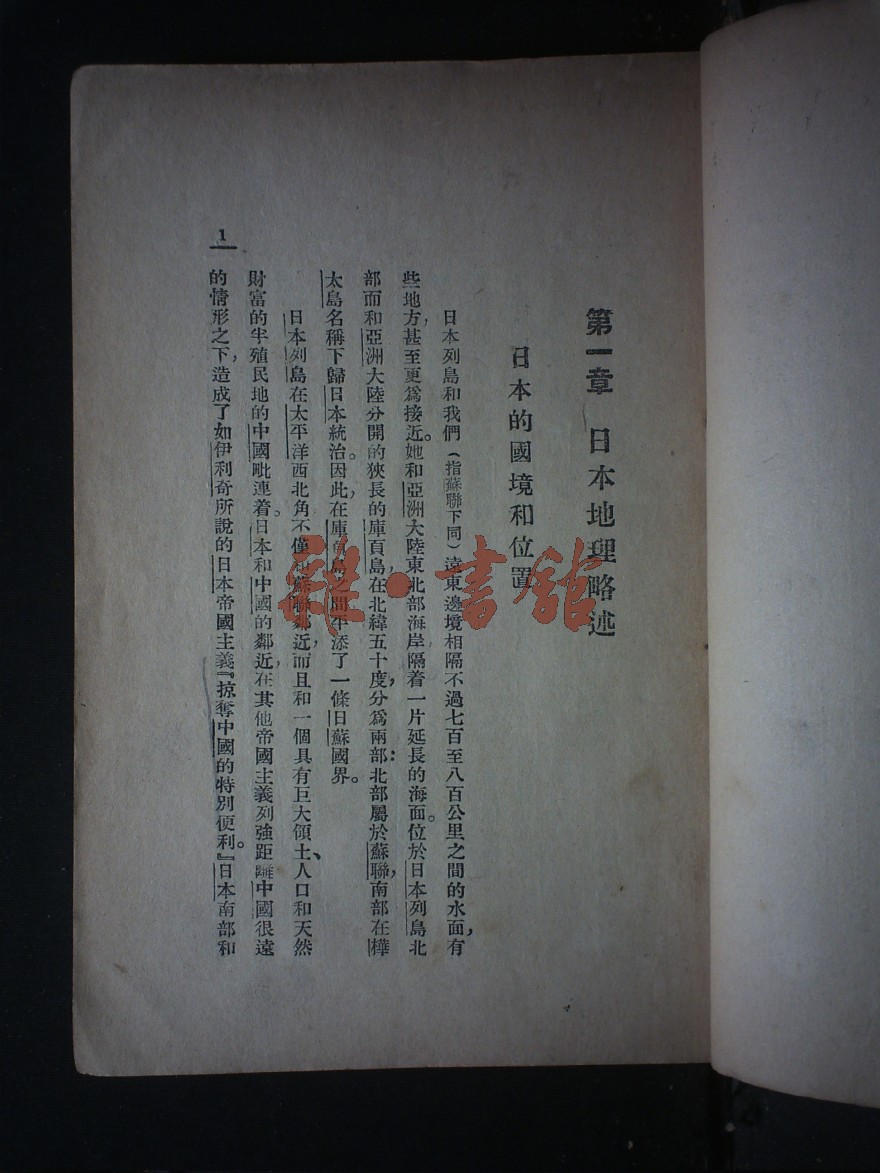 第一章　日本地理略述
日本的國境和位置
日本列島和我們（指蘇聯下同）遠東邊境相隔不過七百至八百公里之間的水面，有
些地方，甚至更爲接近。她和亞洲大陸東北部海岸隔着一片延長的海面。位於日本列島北
部而和亞洲大陸分開的狹長的庫頁島，在北緯五十度，分爲兩部：北部屬於蘇聯，南部在樺
太島名稱下歸日本統治。因此，在庫頁島之間平添了一條日蘇國界。
日本列島在太平洋西北角，不僅和蘇聯鄰近，而且和一個具有巨大領土、人口和天然
財富的半殖民地的中國毗連着。日本和中國的鄰近，在其他帝國主義列強距離中國很遠
的情形之下，造成了如伊利奇所說的日本帝國主義『掠奪中國的特別便利。』日本南部和
1
雜·書館